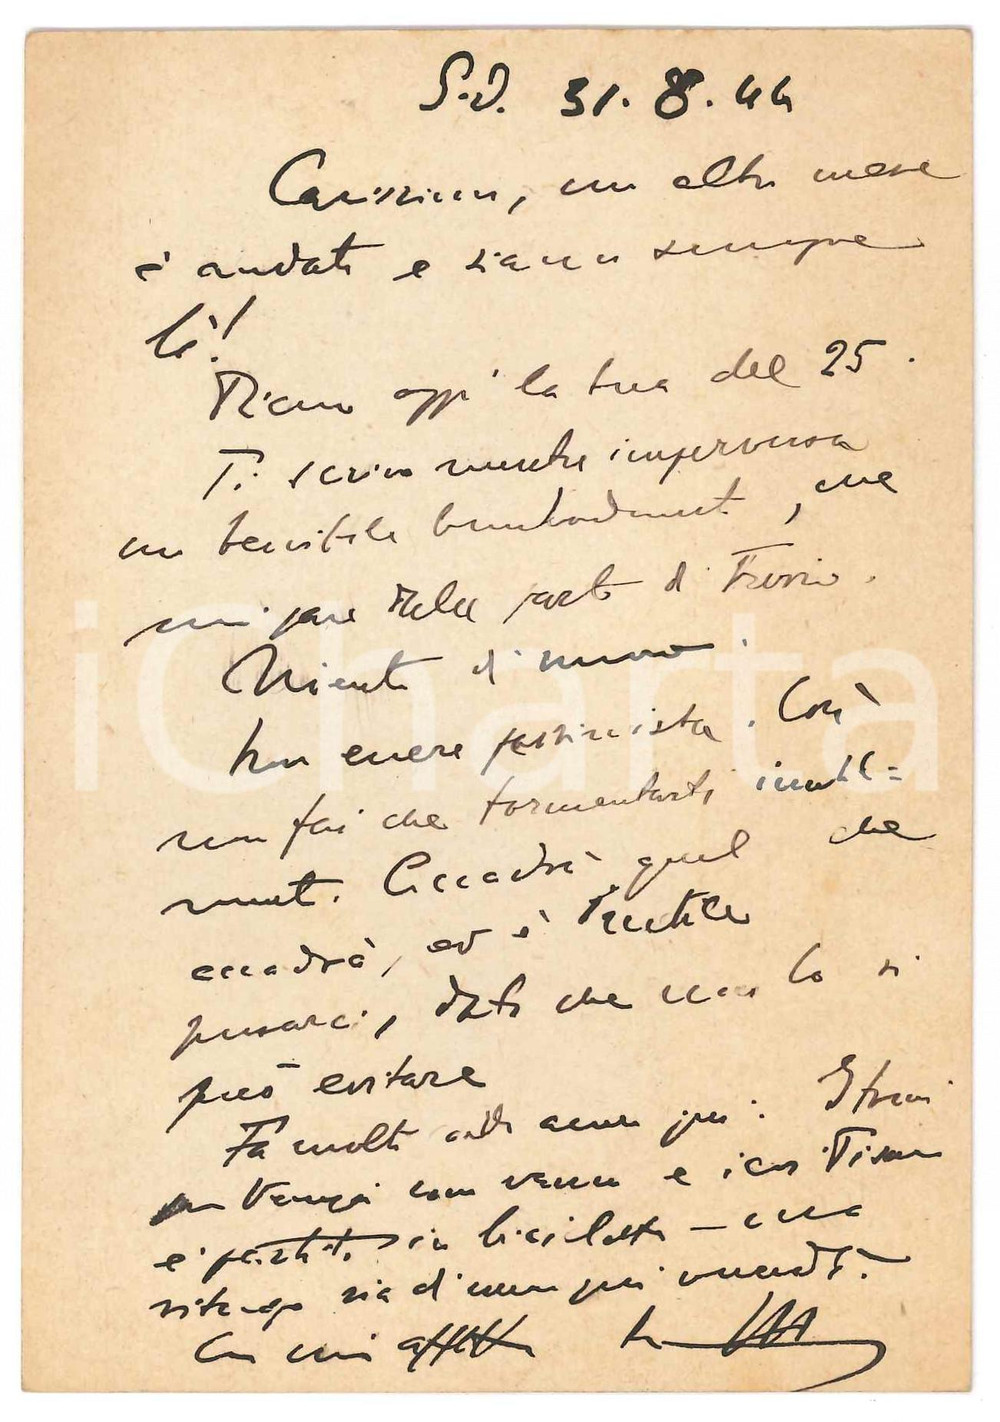 S.D. 31.8.44
Carissimo, un altro mese
è andato e siamo sempre
lì!
Ricevo oggi la tua del 25.
Ti scrivo mentre imperversa
un terribile bombardament, che
mi pare dalla parte di
Niente di nuovo.
Non essere pessimista. Così
non fai che tormentarti inutil=
ment. Accadrà quel che
accadrà, ed è inutile
pensarci, dato che non lo si
può evitare
Fa molto caldo anche qui.
e
è partito in bicicletta —
ritengo sia di
Con mi affett
iCharta